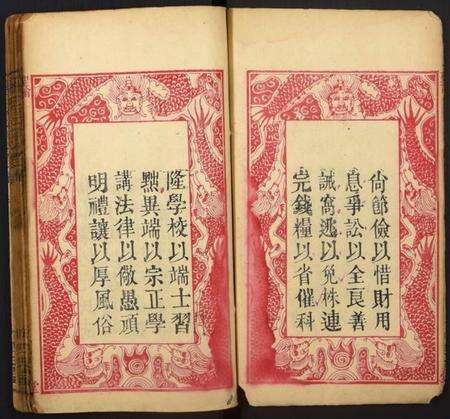 尙節儉以惜財用
息爭訟以全良善
誡窩逃以免株連
完錢糧以省催科
隆學校以端士習
黜異端以宗正學
講法律以儆愚頑
明禮讓以厚風俗